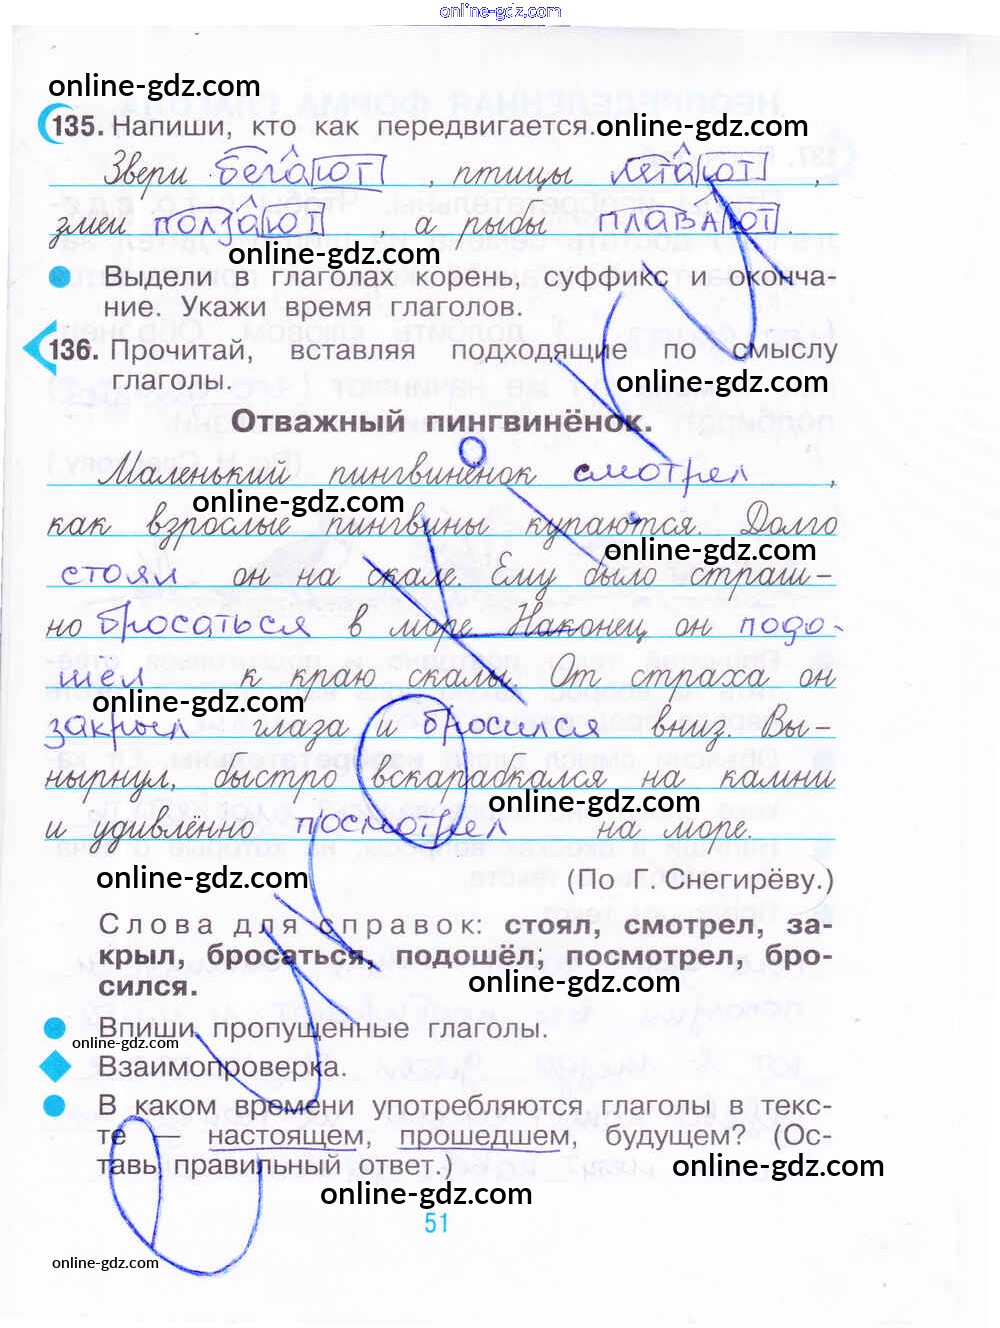 online-gdz.com
online-gdz.com
135. Напиши, кто как передвигается. online-gdz.com
Звери бегают, птицы летают,
змеи ползают, а рыбы плавают.
online-gdz.com
Выдели в глаголах корень, суффикс и оконча-
ние. Укажи время глаголов.
136. Прочитай, вставляя подходящие по смыслу
глаголы.
online-gdz.com
Отважный пингвинёнок.
Маленький пингвинёнок смотрел,
online-gdz.com
как взрослые пингвины купаются. Долго
online-gdz.com
стоял он на скале. Ему было страш-
но бросаться в море. Наконец он подо-
шёл к краю скалы. От страха он
online-gdz.com
закрыл глаза и бросился вниз. Вы-
нырнул, быстро вскарабкался на камни
online-gdz.com
и удивлённо посмотрел на море.
online-gdz.com
(По Г. Снегирёву.)
Слова для справок: стоял, смотрел, за-
крыл, бросаться, подошёл, посмотрел, бро-
сился.
online-gdz.com
Впиши пропущенные глаголы.
online-gdz.com
Взаимопроверка.
В каком времени употребляются глаголы в текс-
те — настоящем, прошедшем, будущем? (Ос-
тавь правильный ответ.)
online-gdz.com
online-gdz.com
51
online-gdz.com